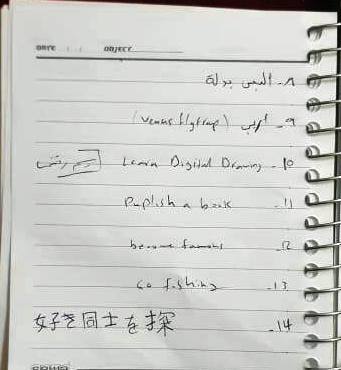 DATE / / OBJECT
٨- البس بدلة
٩- اربي (Venus flytrap)
Learn Digital Drawing -١٠
Puplish a book -١١
become famous -١٢
Go fishing -١٣
好き同士を探 -14